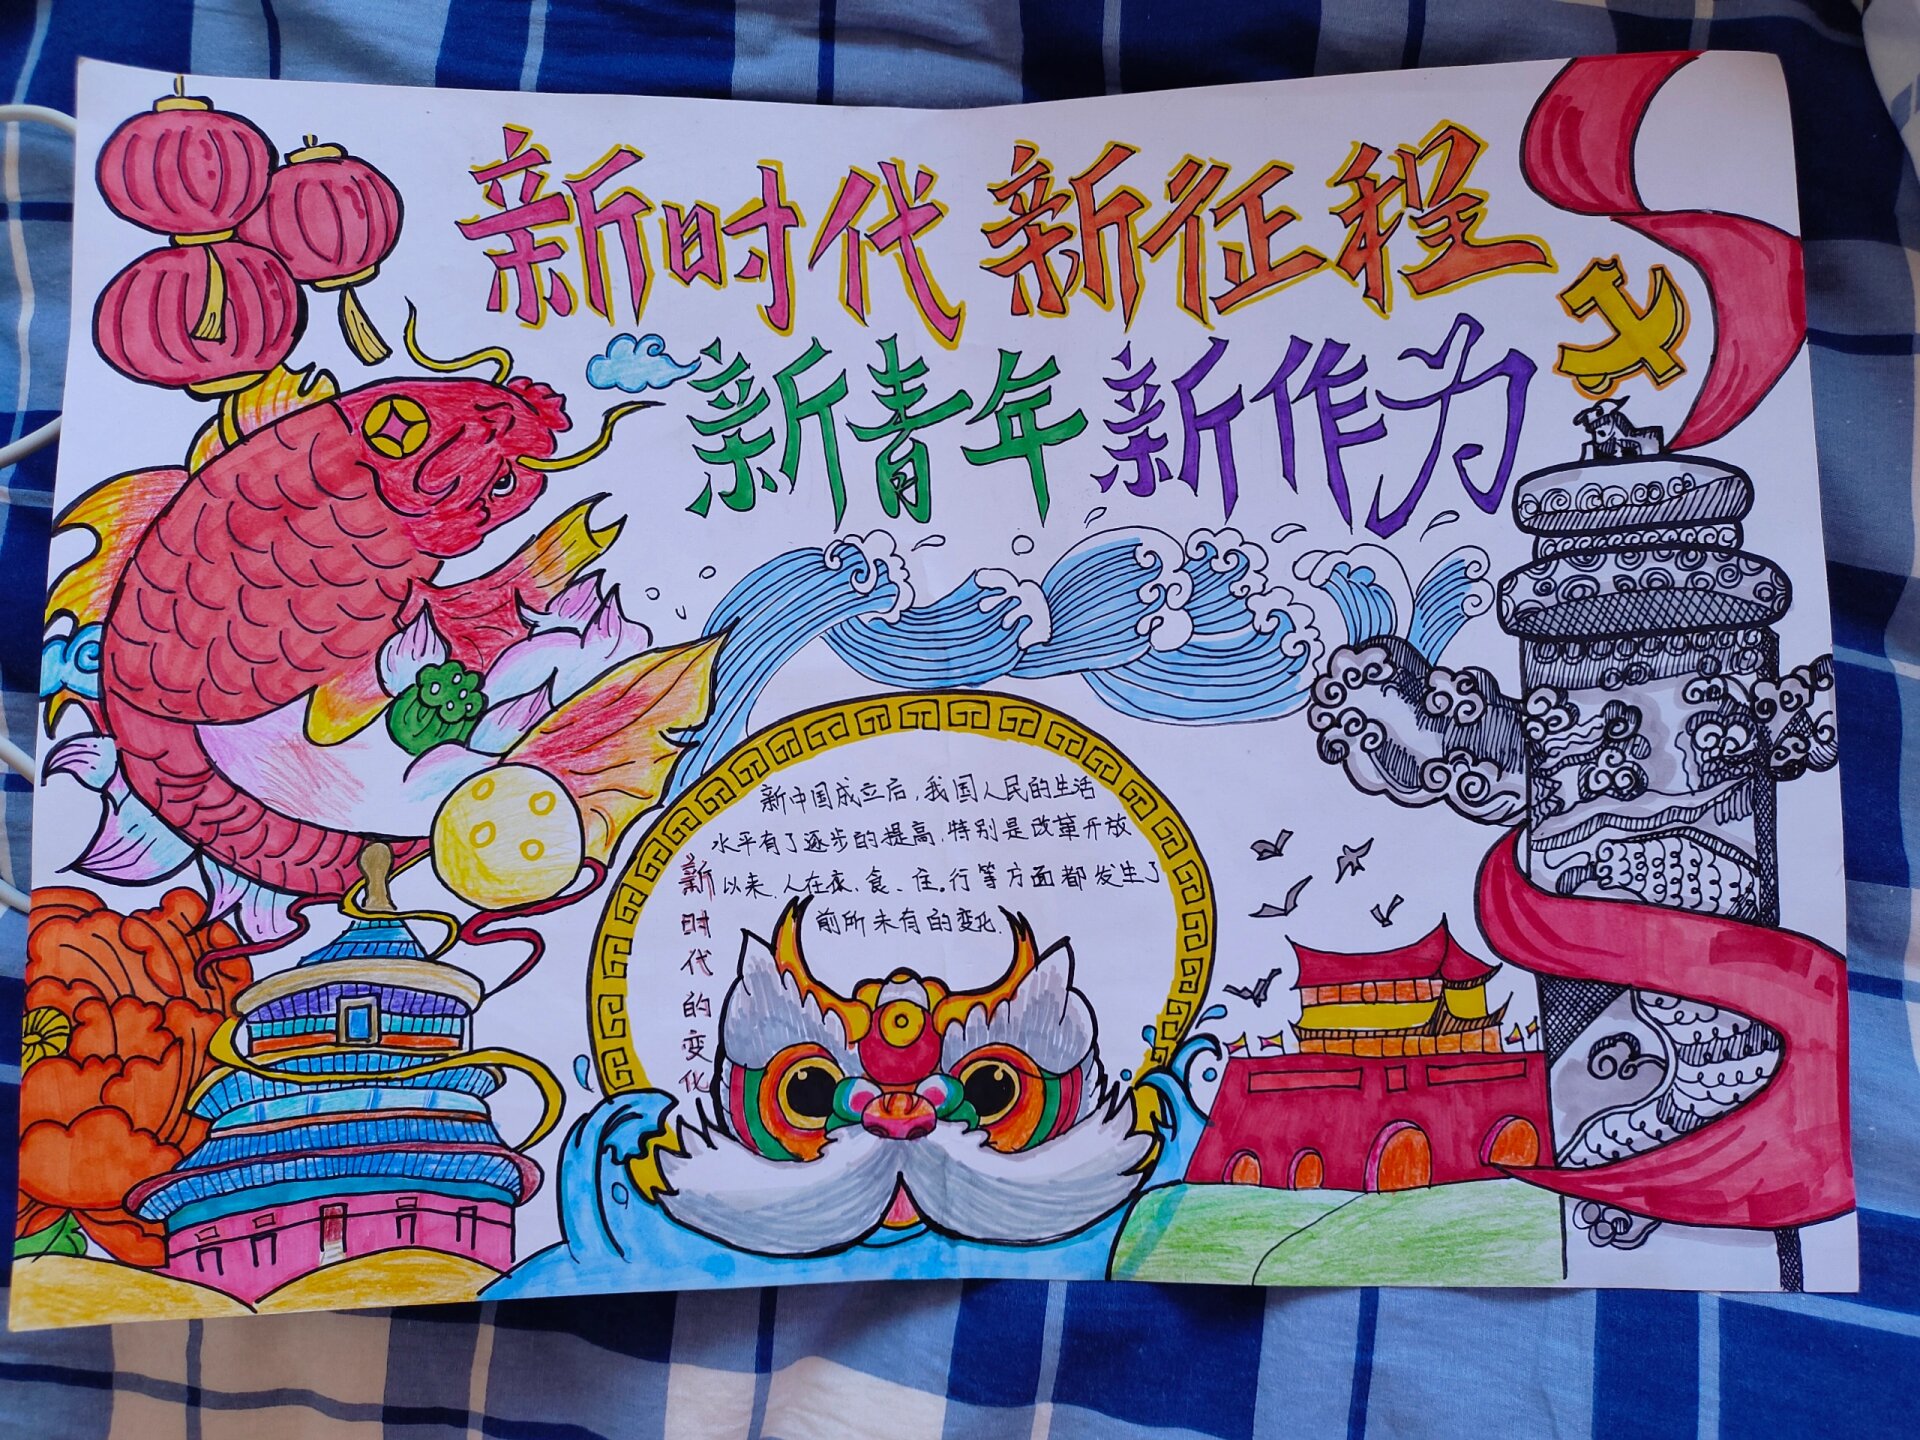 新时代 新征程
新青年 新作为
新中国成立后,我国人民的生活
水平有了逐步的提高.特别是改革开放
以来.人在衣、食、住。行等方面都发生了
前所未有的变化.
新时代的变化